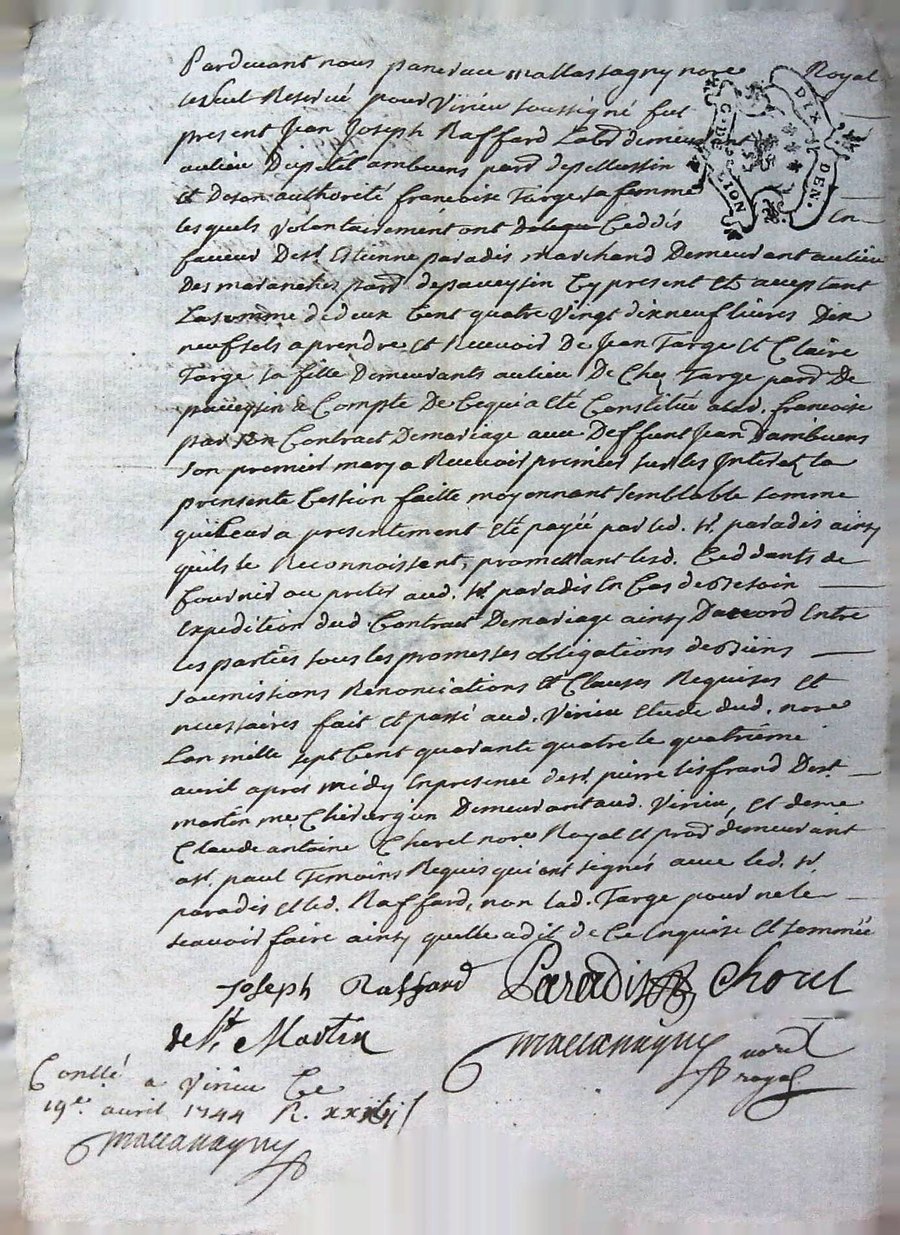 Pardevant nous nore Royal
reservé pour Virieu soussigné fut
present Jean Joseph Raffard Labr. demeurant
au lieu Du petit ambuens parr. depellussin
et De son authorité francoise Targe sa femme
lesquels volontairement ont Ceddés En
faveur De sr. Estienne paradis marchand Demeurant au lieu
Des maranches parr. de paveysin Cy present et acceptant
La somme de deux Cent quatre Vingt dix neuf livres Dix
neuf sols a prendre et Recevoir De Jean Targe et Claire
Targe sa fille Demeurants au lieu De Chez Targe parr. De
paveysin a Compte De Ce qui a été Constitué a lad. francoise
par son Contract De mariage avec Deffunt Jean Dambuens
son premier mary a Recevoir premier sur les Interets la
prensente Cession faitte moyennant semblable somme
qui Leur a presentement été payée par led. sr. paradis ainsy
qu'ils le Reconnoissent, promettant lesd. Ceddants de
fournir ou preter aud. sr. paradis En Cas de Besoin
Expedition dud. Contract De mariage ainsy D'accord Entre
les parties sous les promesses obligations de Biens
soumissions Renonciations et Clauses Requises et
necessaires fait et passé aud. Virieu Etude dud. nore
L'an mille sept Cent quarante quatre le quatrième
avril après midy En presence de sr. pierre De st.
martin me Chirurgien Demeurant aud. Virieu, et de me
Claude antoine nore Royal et prour demeurant
a st. paul Temoins Requis qui ont signés avec led. sr.
paradis et led. Raffard, non lad. Targe pour ne le
scavoir faire ainsy quelle a dit de Ce Enquise et sommée
Joseph Raffard Paradis
de St. Martin
nore royal
Conllé a Virieu Ce
19e. avril 1744 R.
G. DE LION
DIX DEN.